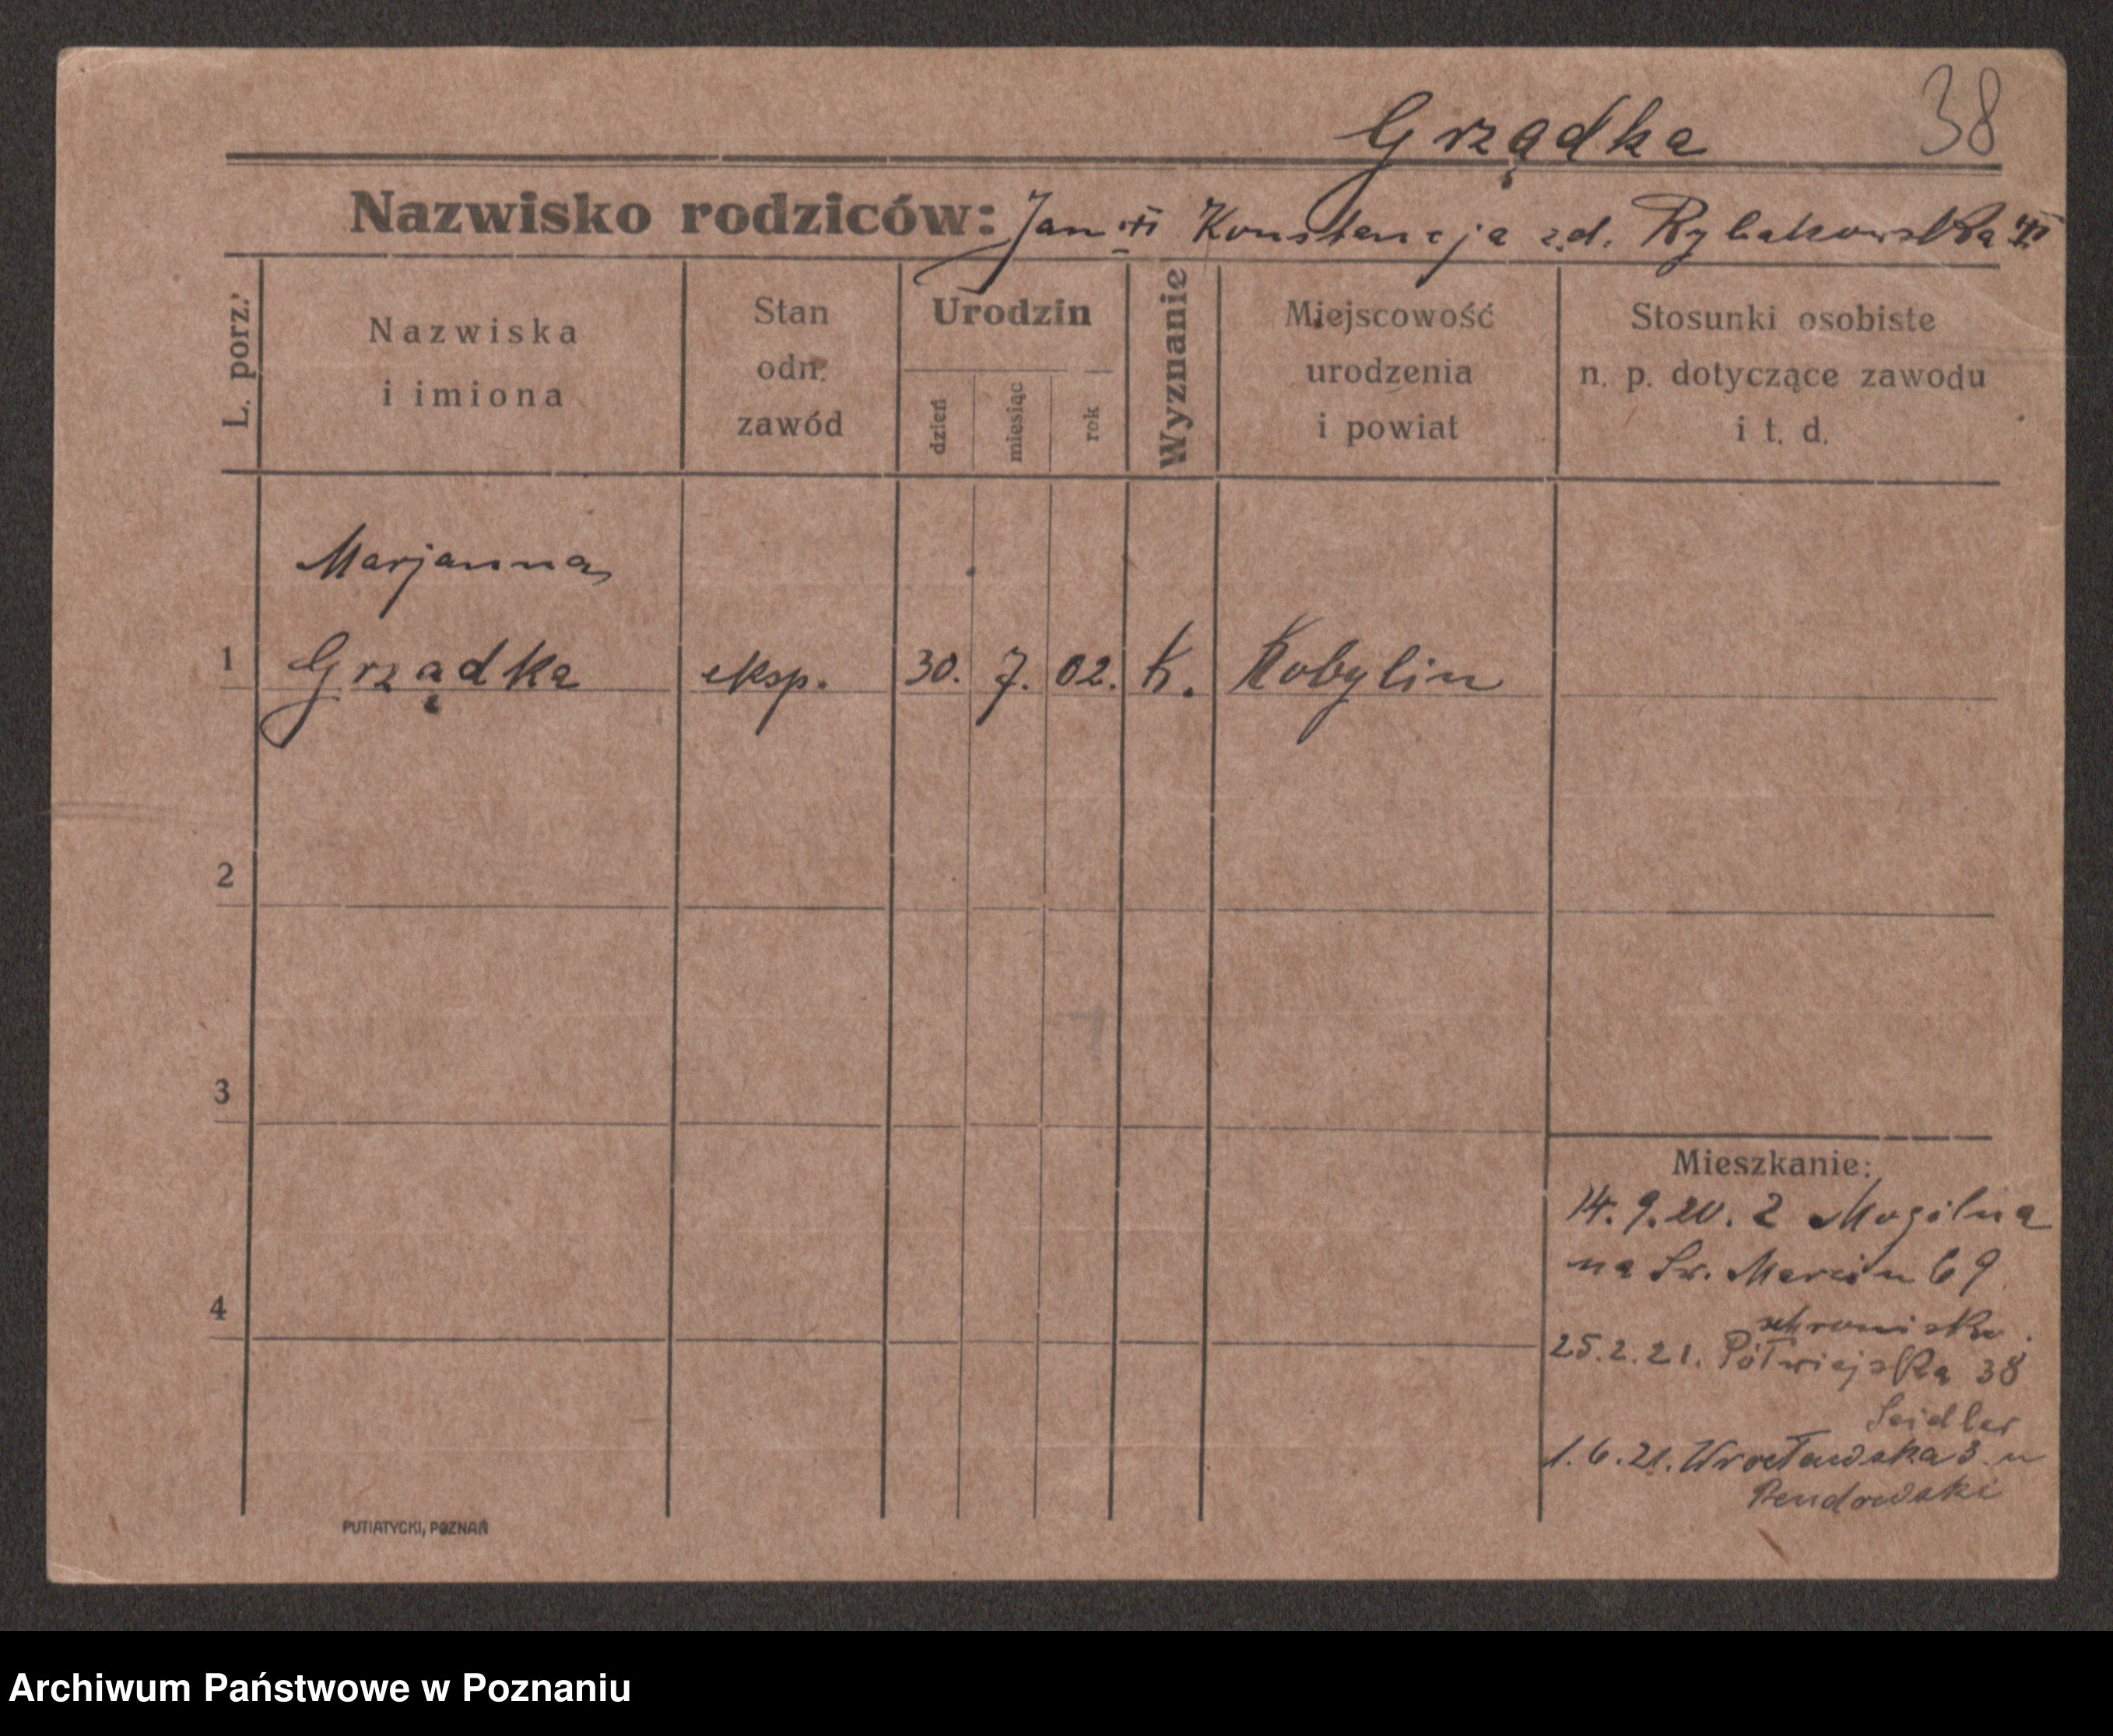 38
Grządka
Nazwisko rodziców: Jan Konstancja z d. Rybakowska
L. porz.
Nazwiska
i imiona
Stan
odn.
zawód
Urodzin
dzień
miesiąc
rok
Wyznanie
Miejscowość
urodzenia
i powiat
Stosunki osobiste
n. p. dotyczące zawodu
i t. d.
Marjanna
1 Grządka eksp. 30. 7. 02. K. Kobylin
2
3
4
Mieszkanie:
14. 9. 20. z Mogilna
na Św. Marcin 69
schronisko.
25. 2. 21. Półwiejska 38
Seidler
1. 6. 21. Wrocławska 3. u
Bendowski
PUTIATYCKI, POZNAŃ
Archiwum Państwowe w Poznaniu